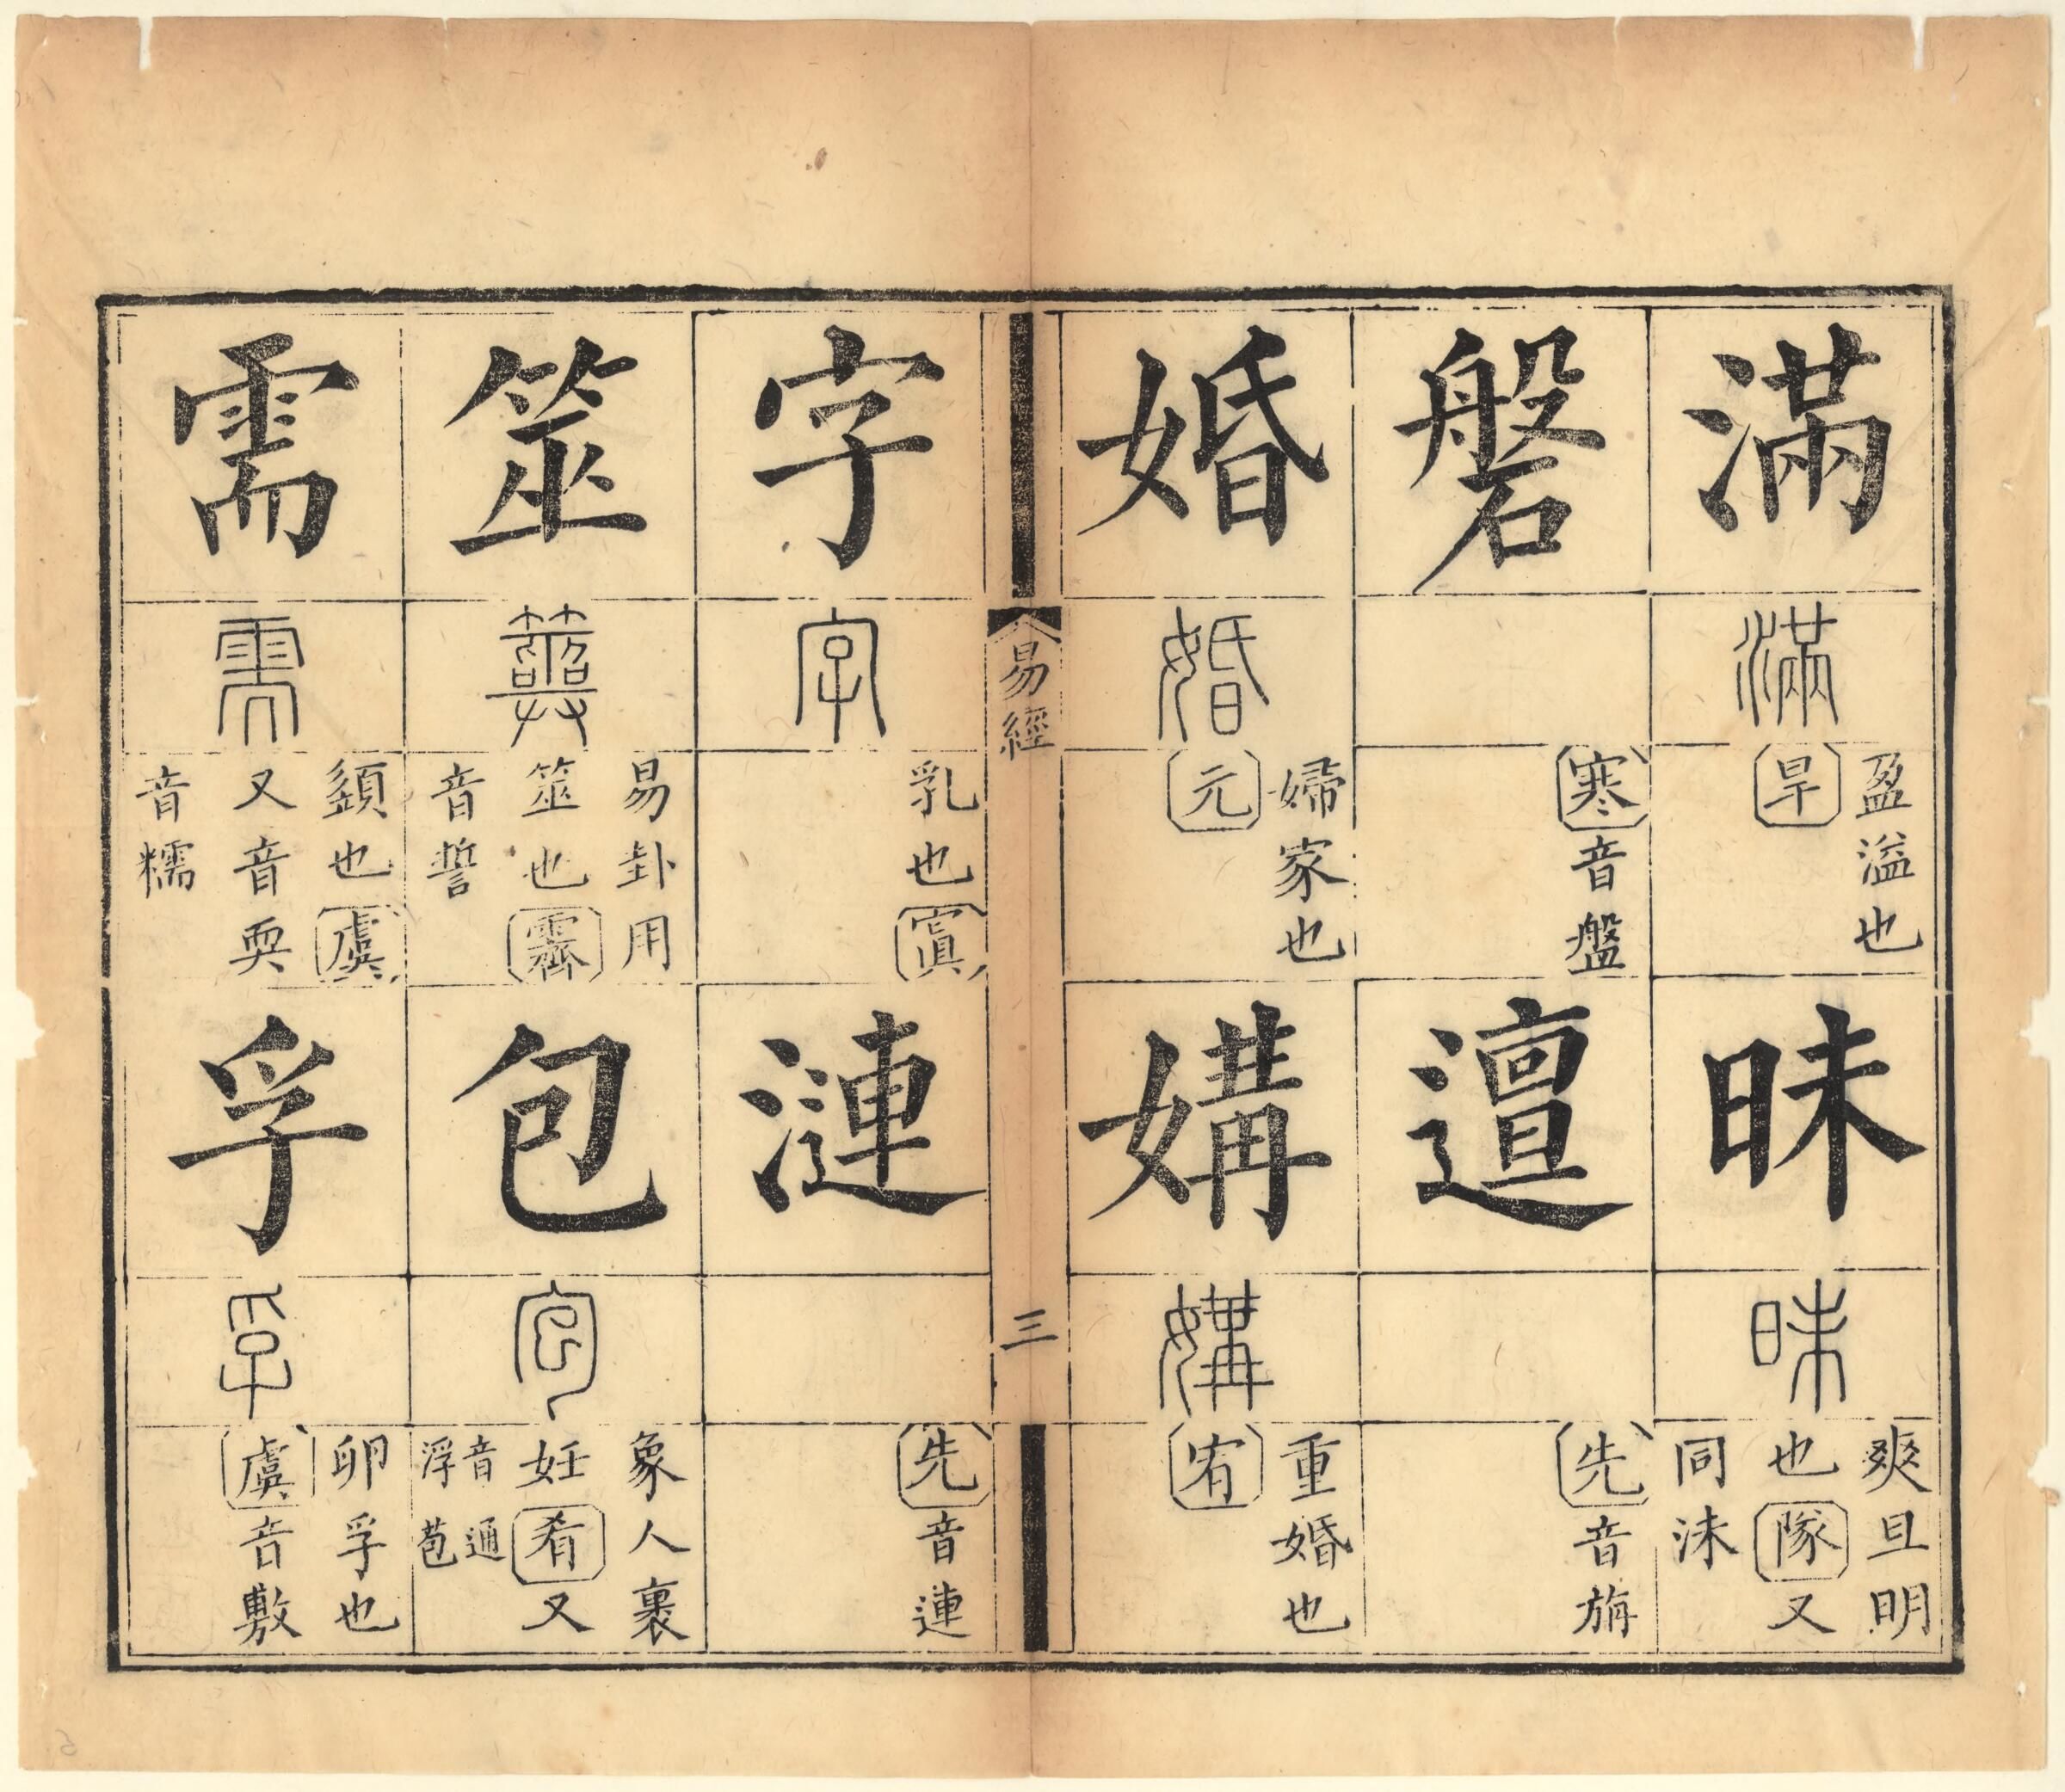 滿
滿
盈溢也
旱
昧
昧
爽旦明
也隊又
同沬
磐
寒音盤
邅
先音旃
婚
婚
婦家也
元
媾
媾
重婚也
宥
易經
三
字
字
乳也寘
漣
先音連
筮
易卦用
筮也霽
音誓
包
包
象人裹
妊肴又
音通
浮苞
需
需
須也虞
又音耎
音糯
孚
孚
卵孚也
虞音敷